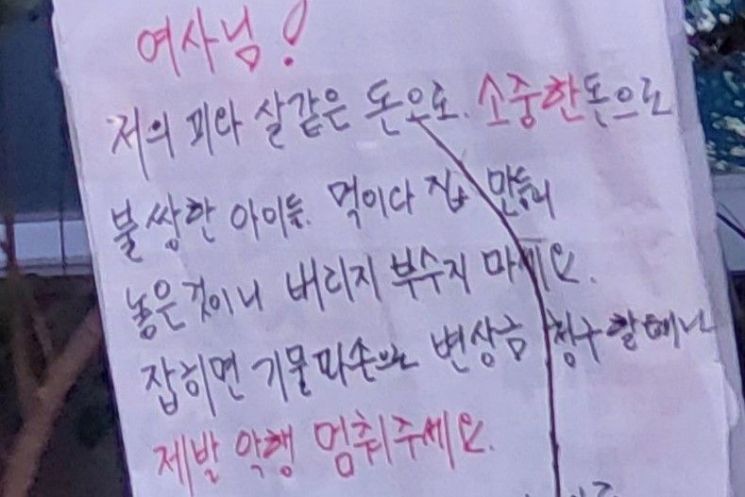 여사님!
저의 피와 살같은 돈으로. 소중한돈으로
불쌍한 아이들. 먹이다 집 만들어
놓은것이니 버리지 부수지 마세요.
잡히면 기물파손으로 변상금 청구할테니
제발 악행 멈춰주세요.